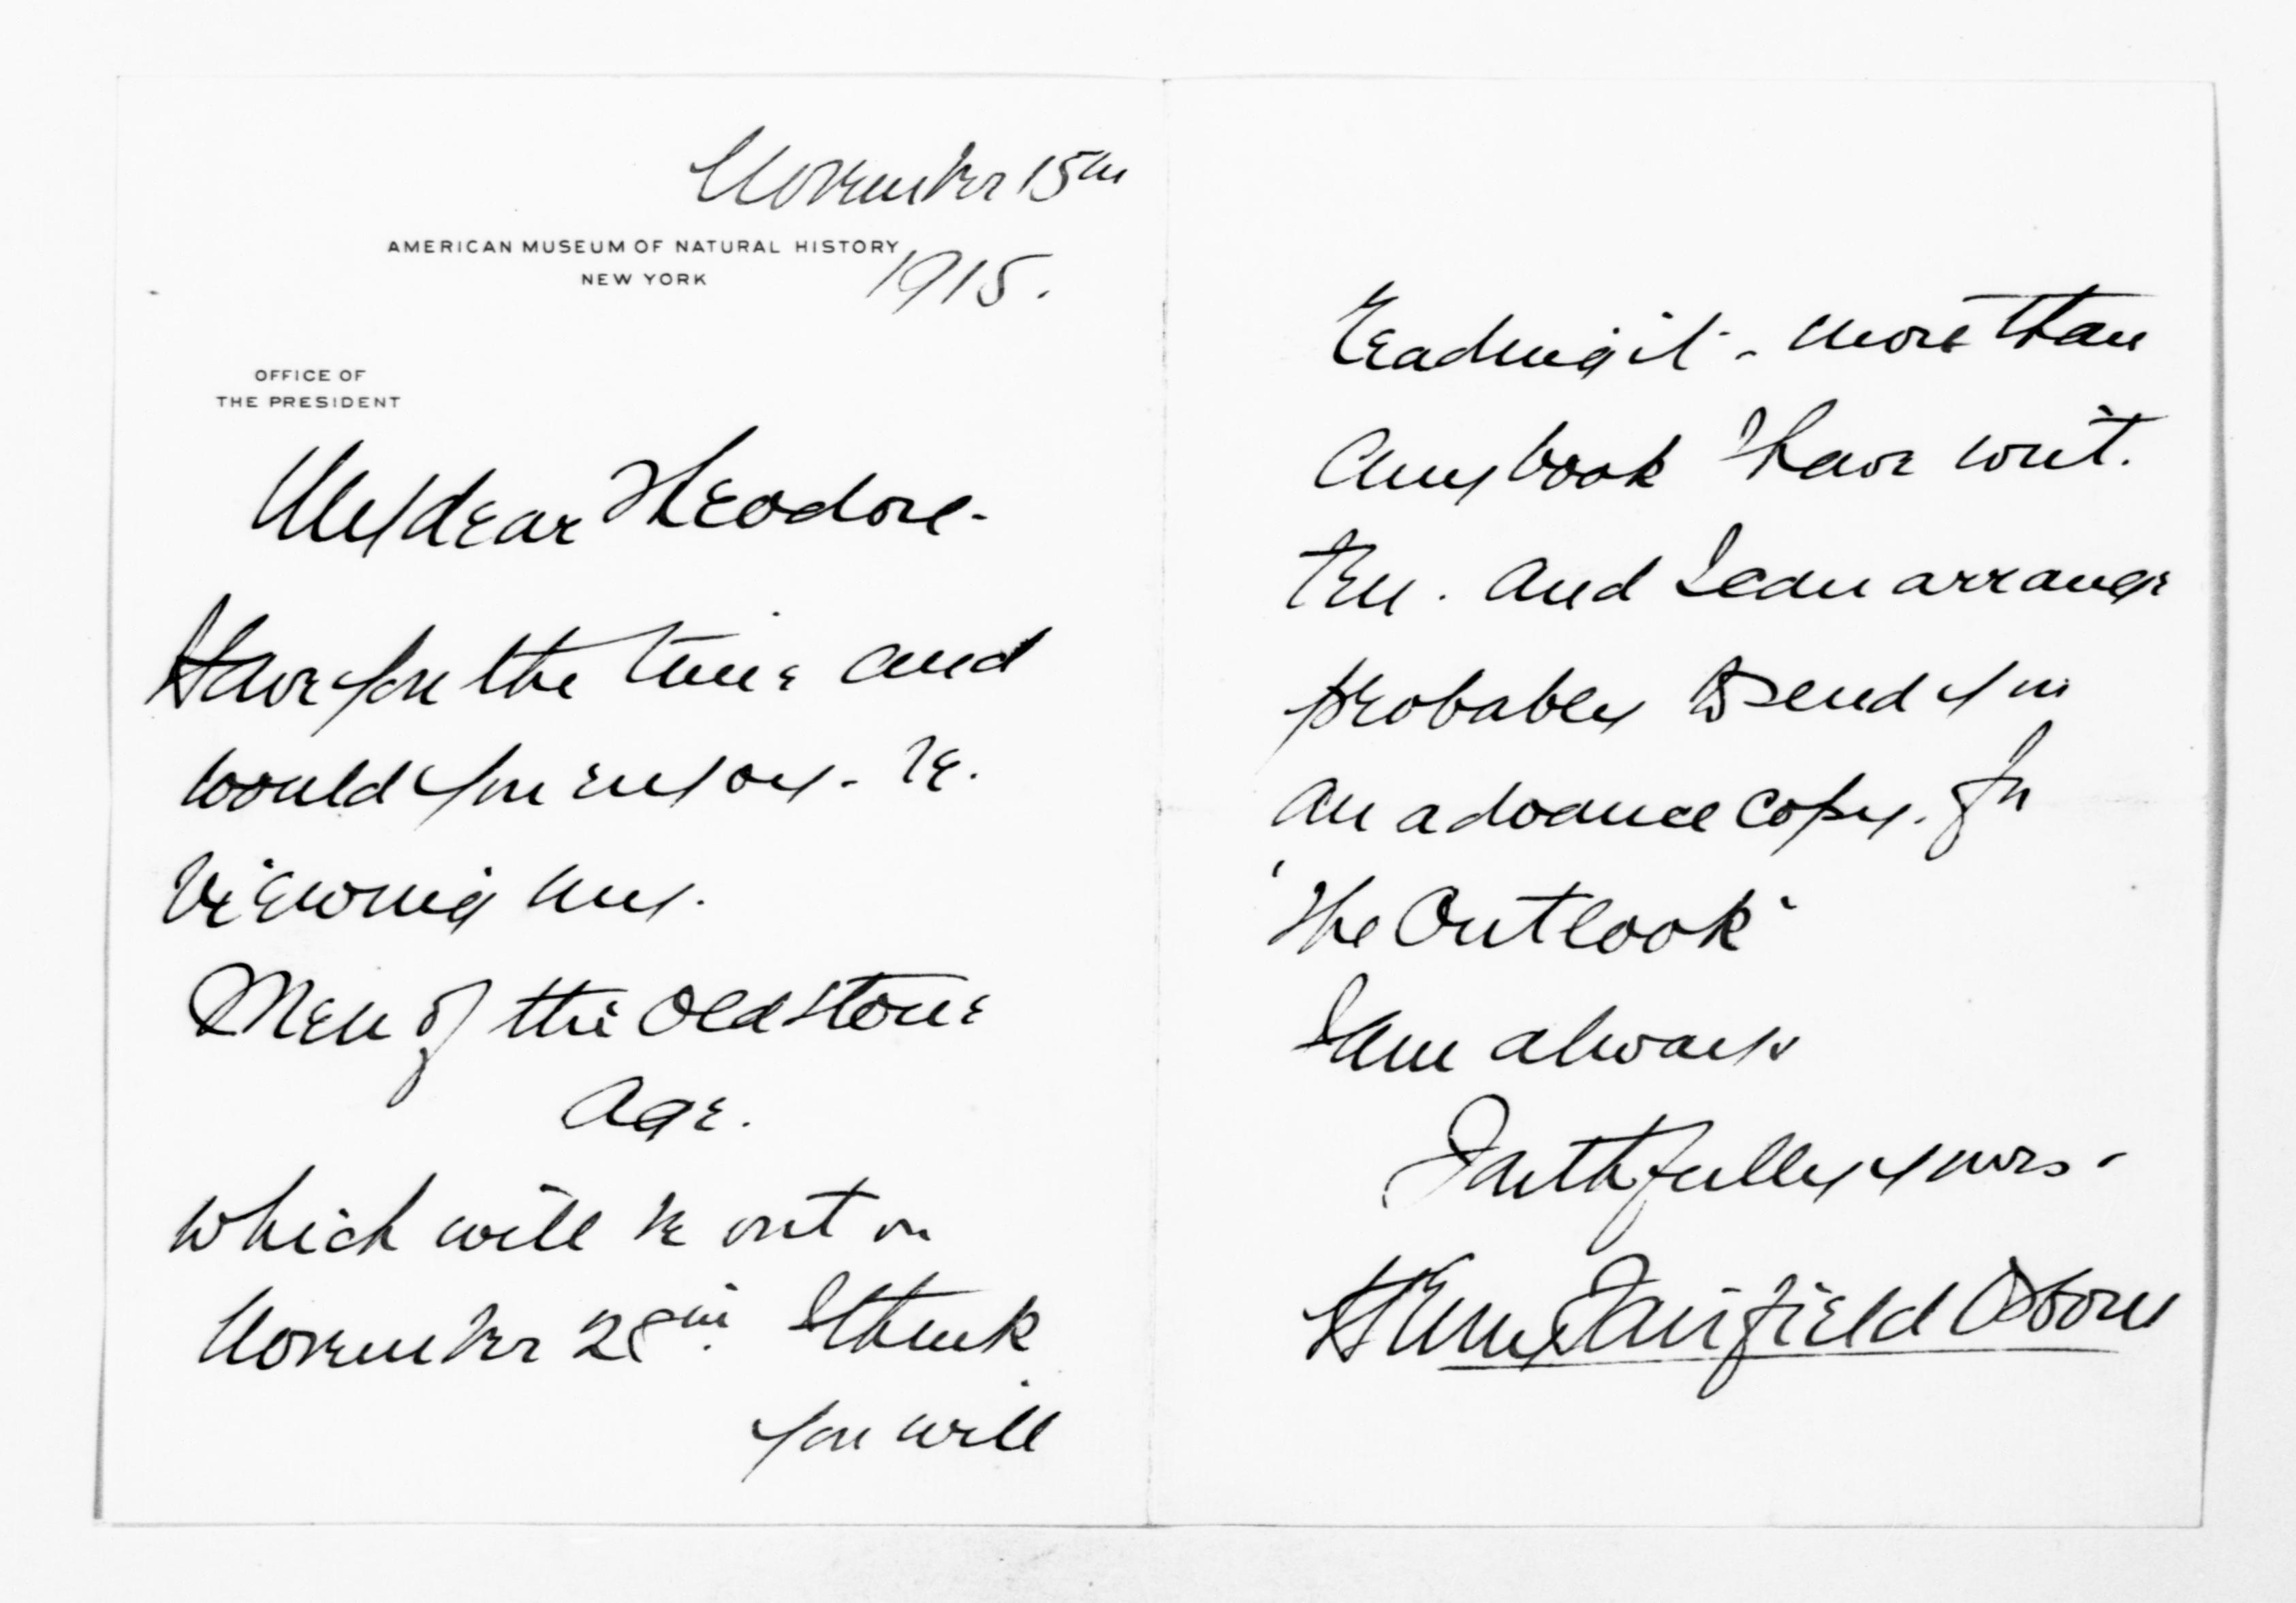 November 15th
AMERICAN MUSEUM OF NATURAL HISTORY
NEW YORK
1915.
OFFICE OF
THE PRESIDENT
My dear Theodore-
Have you the time and
would you enjoy - re-
viewing my.
Men of the Old Stone
Age.
which will be out on
November 28th. I think
you will
reading it - more than
any book I have writ-
ten. and I can arrange
probably to send you
an advance copy. for
'The Outlook'
I am always
Faithfully yours-
Henry Fairfield Osborn